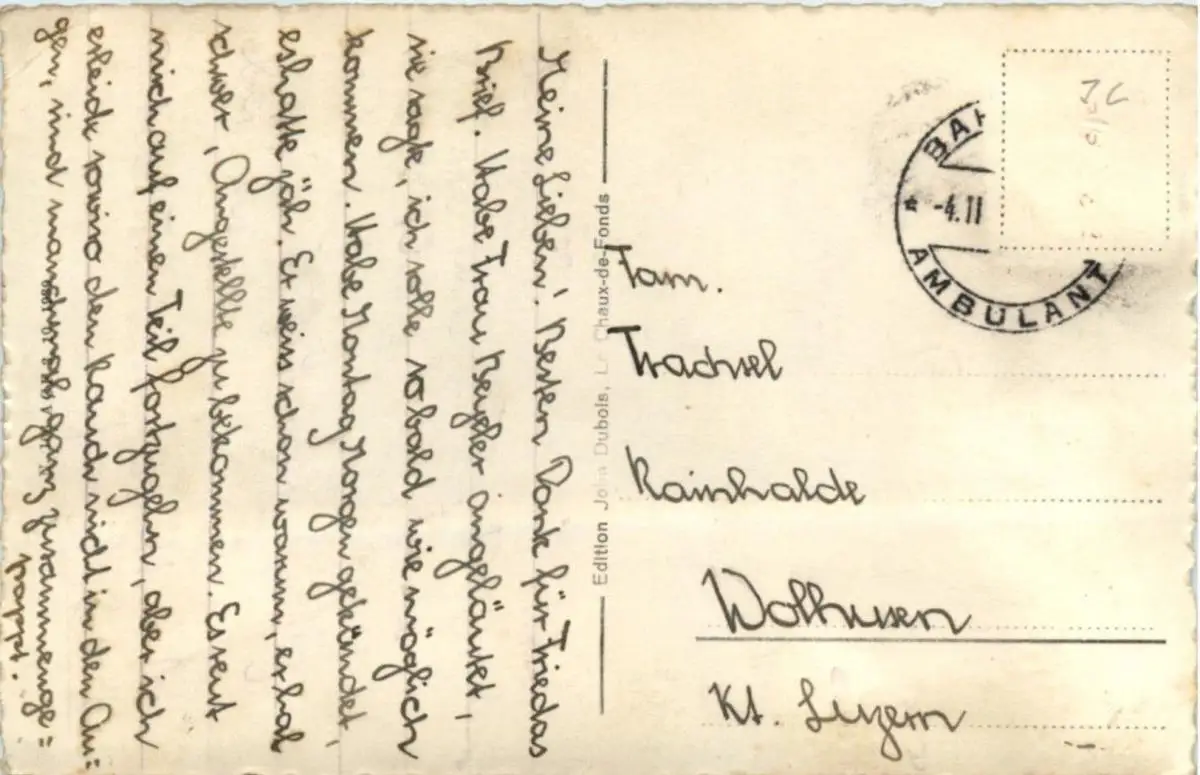 Meine Lieben! Besten Dank für Friedas
Brief. Habe Frau Beyeler angeläutet,
sie sagte, ich solle sobald wie möglich
kommen. Habe Montag Morgen gekündet,
es hatte jäh. Er weiss schon warum, er hat
schwer, Angestellte zu bekommen. Es reut
mich auf einen Teil fortzugehn, aber ich
erleide sowiso den Rauch nicht in den Au=
gen, sind manchmal ganz zusammenge=
pappt.
Edition John Dubois, La Chaux-de-Fonds
Fam.
Trachsel
Rainhalde
Wolhusen
Kt. Luzern
BAH
-4.II
AMBULANT